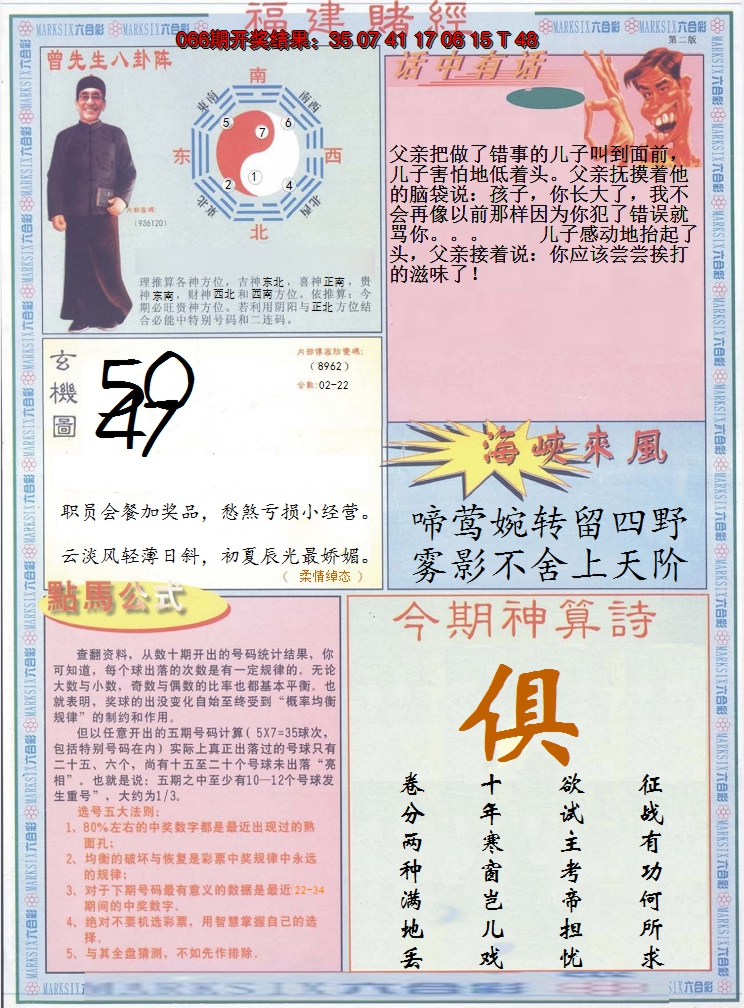 福建賭經
066期开奖结果：35 07 41 17 06 15 T 48
MARKSIX六合彩
第二版
曾先生八卦阵
南
东南
南西
5
6
7
东
西
2
1
4
东北
北西
北
内部密碼:
(936120)
理推算各神方位，吉神东北，喜神正南，贵
神东南，财神西北和西南方位。依推算：今
期必旺贵神方位。若利用阴阳与正北方位结
合必能中特别号码和二连码。
话中有话
父亲把做了错事的儿子叫到面前，
儿子害怕地低着头。父亲抚摸着他
的脑袋说：孩子，你长大了，我不
会再像以前那样因为你犯了错误就
骂你。。。 儿子感动地抬起了
头，父亲接着说：你应该尝尝挨打
的滋味了！
玄機圖
59
47
(8962)
合數:02-22
职员会餐加奖品，愁煞亏损小经营。
云淡风轻薄日斜，初夏辰光最娇媚。
（ 柔情绰态 ）
海峽來風
啼莺婉转留四野
雾影不舍上天阶
點馬公式
查翻资料，从数十期开出的号码统计结果，你
可知道，每个球出落的次数是有一定规律的。无论
大数与小数，奇数与偶数的比率也都基本平衡。也
就表明，奖球的出没变化自始至终受到“概率均衡
规律”的制约和作用。
但以任意开出的五期号码计算( 5X7=35球次，
包括特别号码在内) 实际上真正出落过的号球只有
二十五、六个，尚有十五至二十个号球未出落“亮
相”。也就是说：五期之中至少有10—12个号球发
生重号”，大约为1/3。
选号五大法则:
1、80%左右的中奖数字都是最近出现过的熟
面孔；
2、均衡的破坏与恢复是彩票中奖规律中永远
的规律；
3、对于下期号码最有意义的数据是最近22-34
期间的中奖数字。
4、绝对不要机选彩票，用智慧掌握自己的选
择。
5、与其全盘猜测，不如先作排除。
今期神算詩
俱
征战有功何所求
欲试主考帝担忧
十年寒窗岂儿戏
卷分两种满地丢